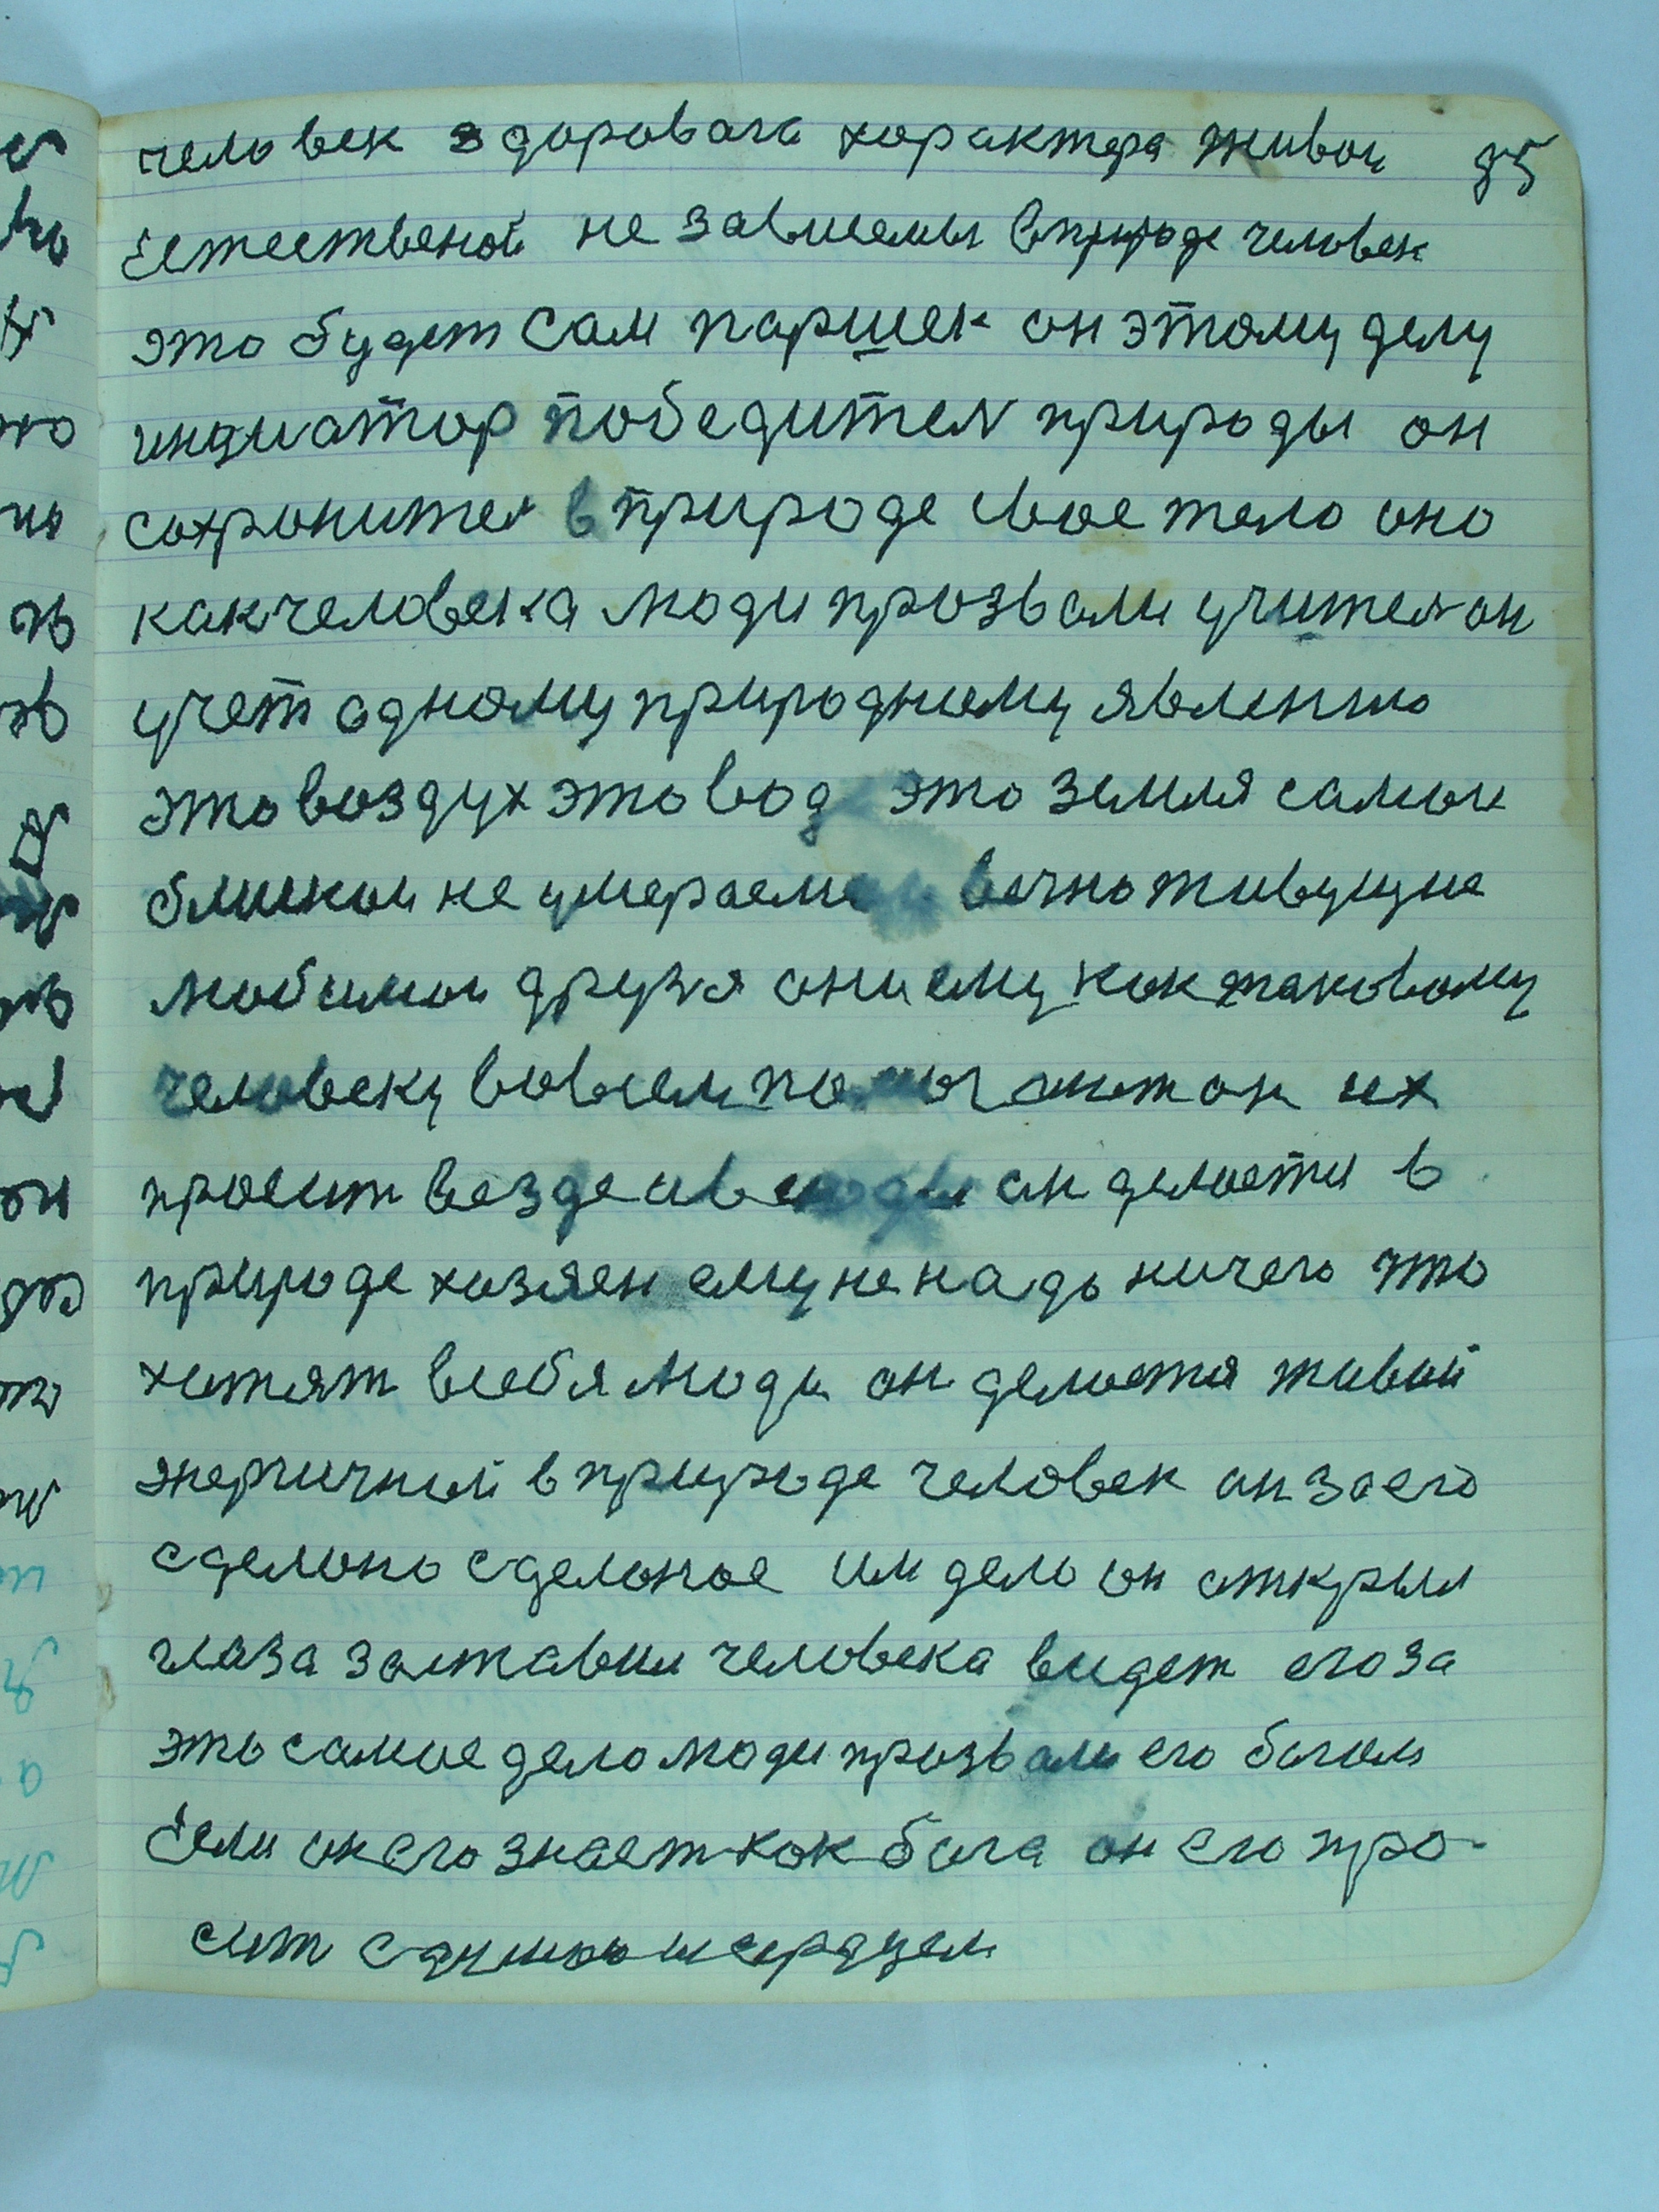 человек здоровага характера живои 35
Естественой не зависемы вприроде человек
это будет сам паршек он этому делу
индиатор победител природы он
сохронител в природе свое тело оно
как человека люди прозвали учител он
учет одному природному явлению
это воздух это вода это земля самыи
блискии не умераемыи вечно живущие
любимыи друзя они ему как таковому
человеку вовсем помогают он их
просит везде и всюды он делается в
природе хазяен ему не надо ничего что
хотят всебя люди он делается живой
энергичной в природе человек он за его
сделоно сделоное им дело он открыл
глаза заставил человека видет его за
это самое дело люди прозвали его богом
Если он его знает как бога он его про-
сит с душои и сердцем